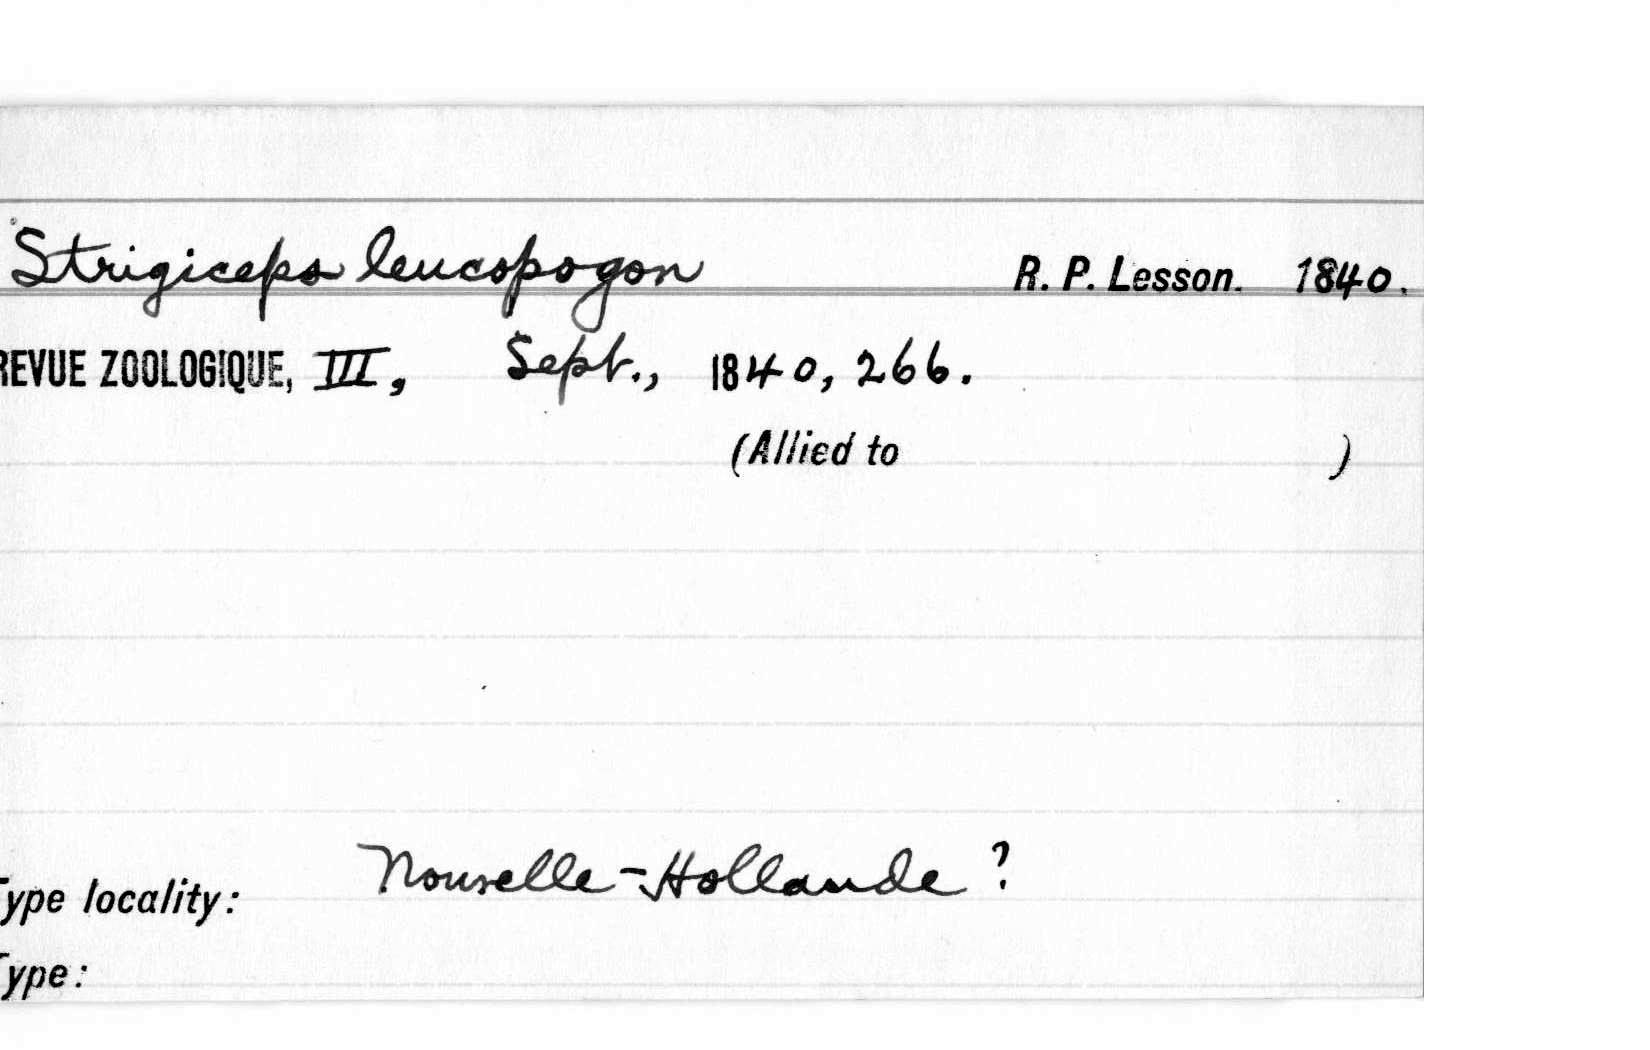 Strigiceps leucopogon R. P. Lesson. 1840.
REVUE ZOOLOGIQUE, III, Sept., 1840, 266.
(Allied to )
Type locality: Nouvelle-Hollande ?
Type: